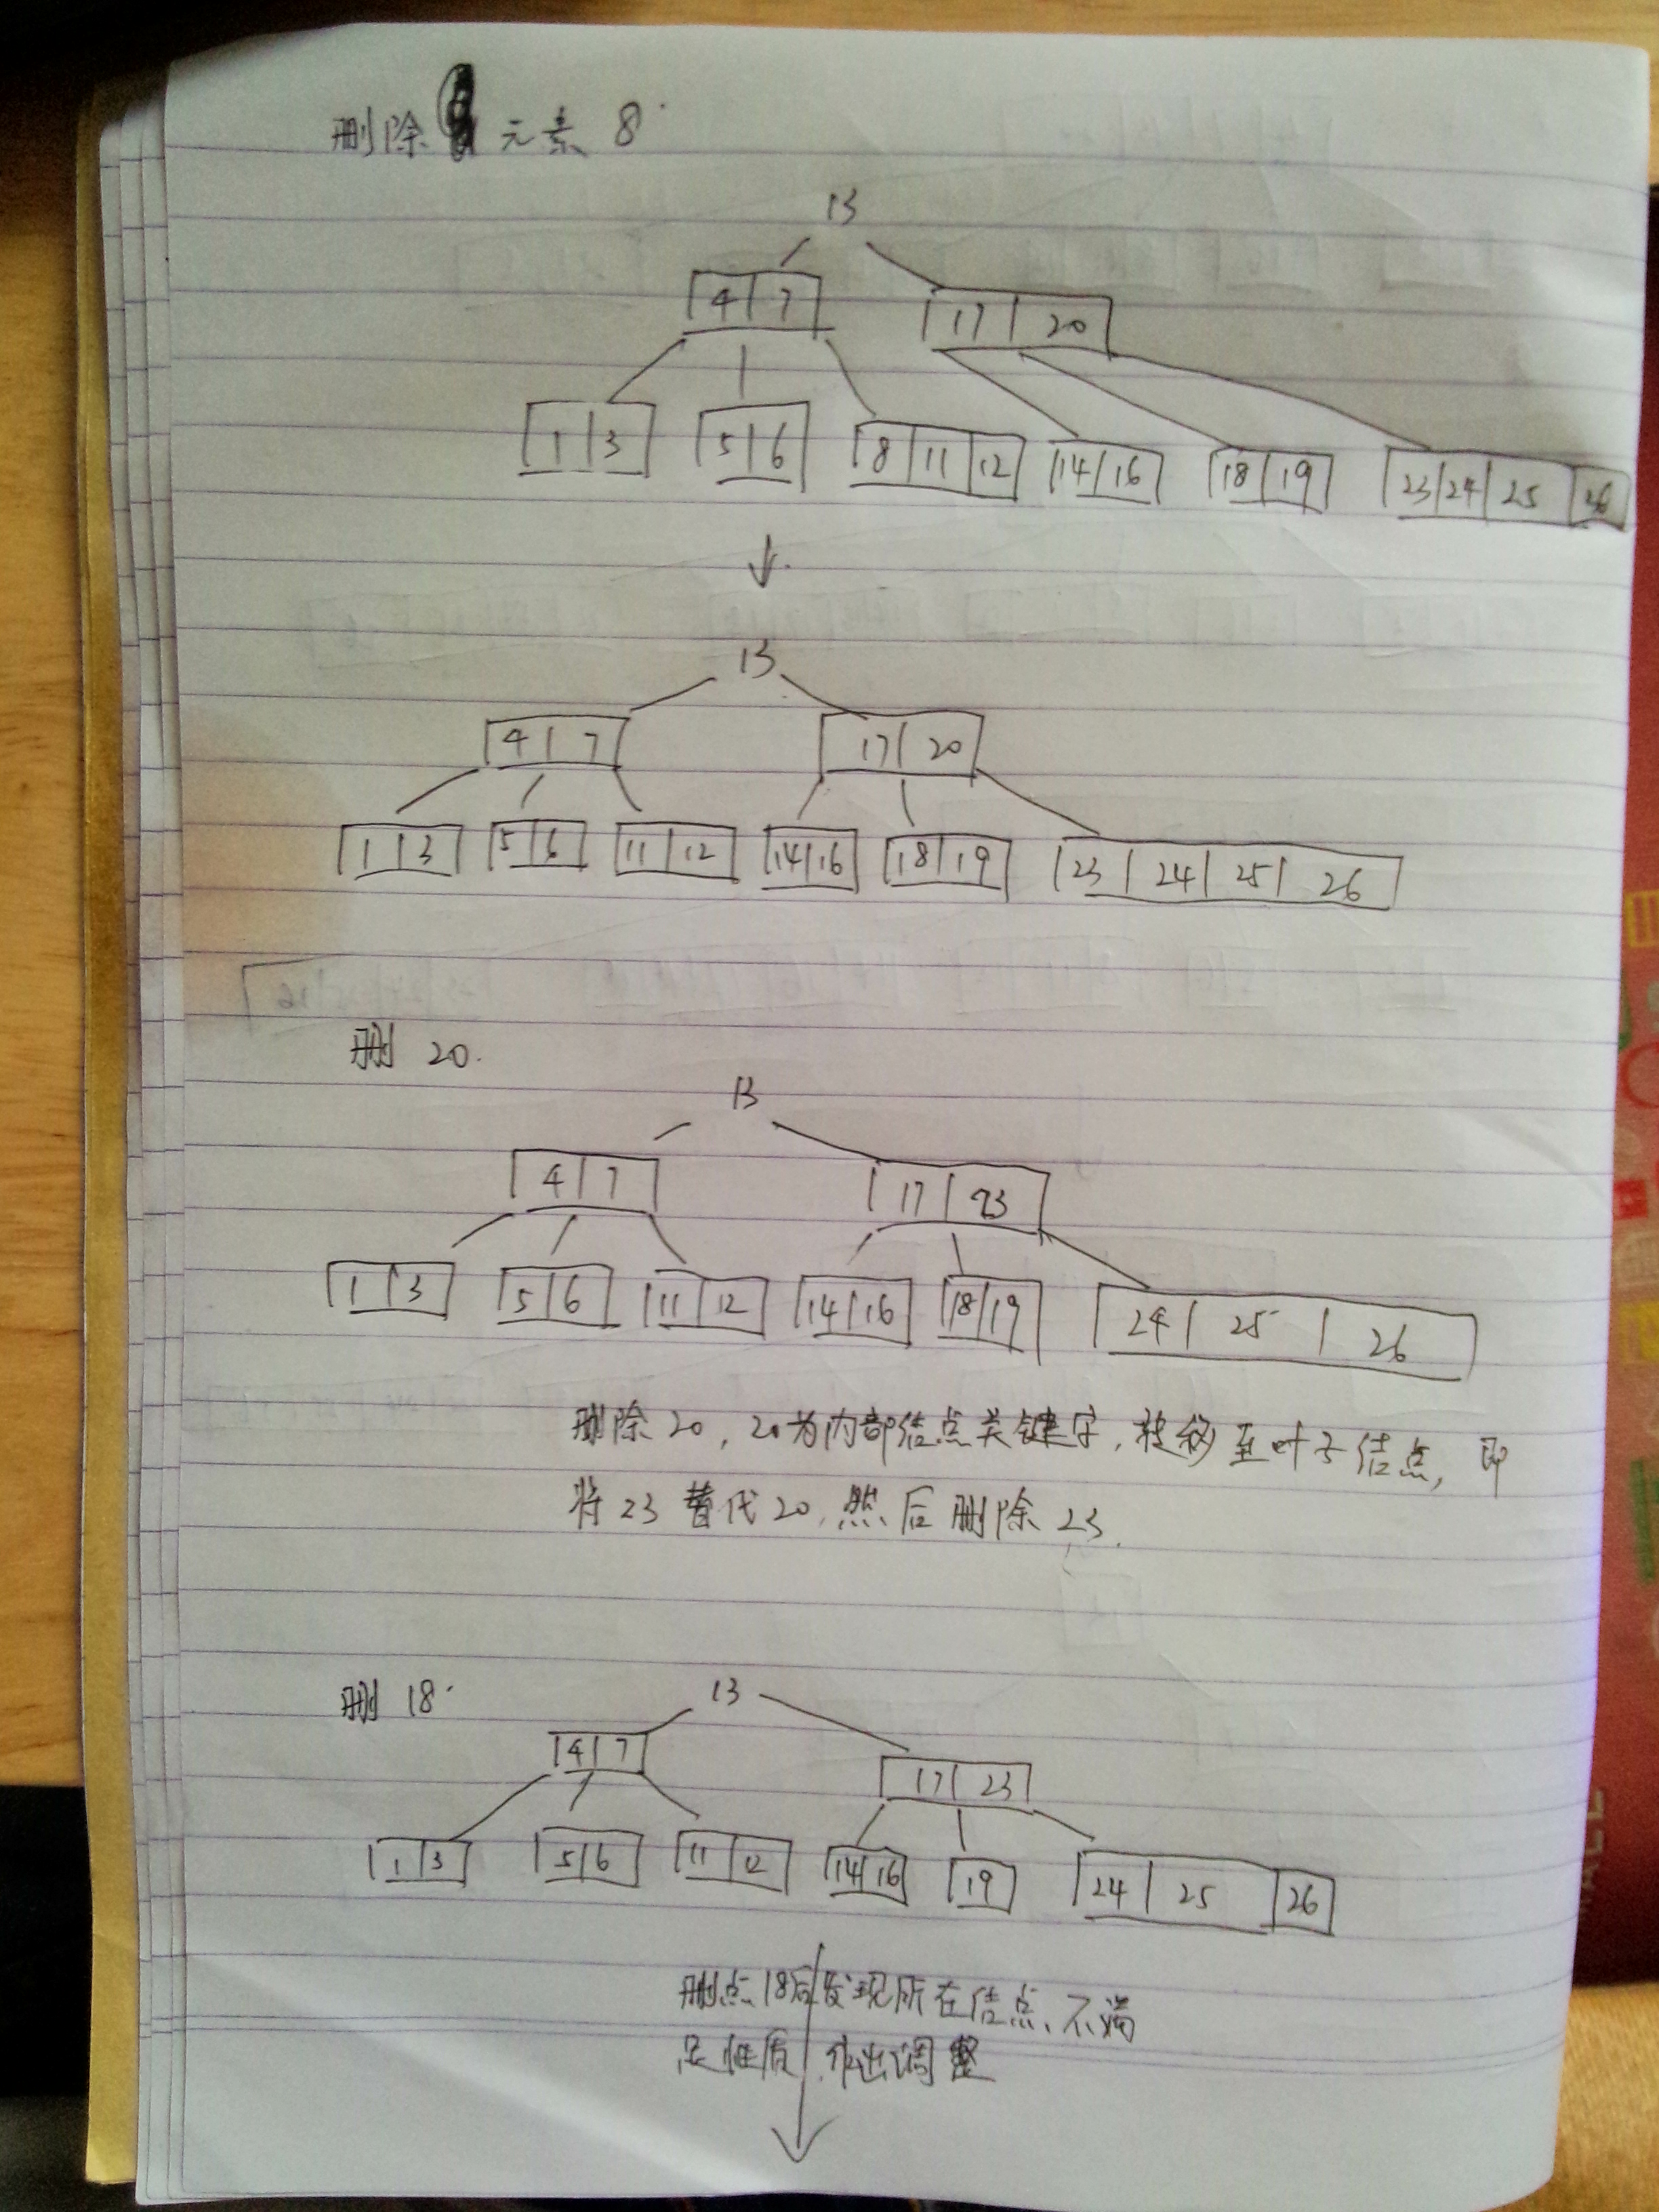 删除 元素 8
13
4 7 17 20
1 3 5 6 8 11 12 14 16 18 19 23 24 25 26
13
4 7 17 20
1 3 5 6 11 12 14 16 18 19 23 24 25 26
删 20.
13
4 7 17 23
1 3 5 6 11 12 14 16 18 19 24 25 26
删除20，20为内部结点关键字，转移至叶子结点，即
将23替代20，然后删除23.
删 18
13
4 7 17 23
1 3 5 6 11 12 14 16 19 24 25 26
删点18后发现所在结点不满
足性质，作出调整